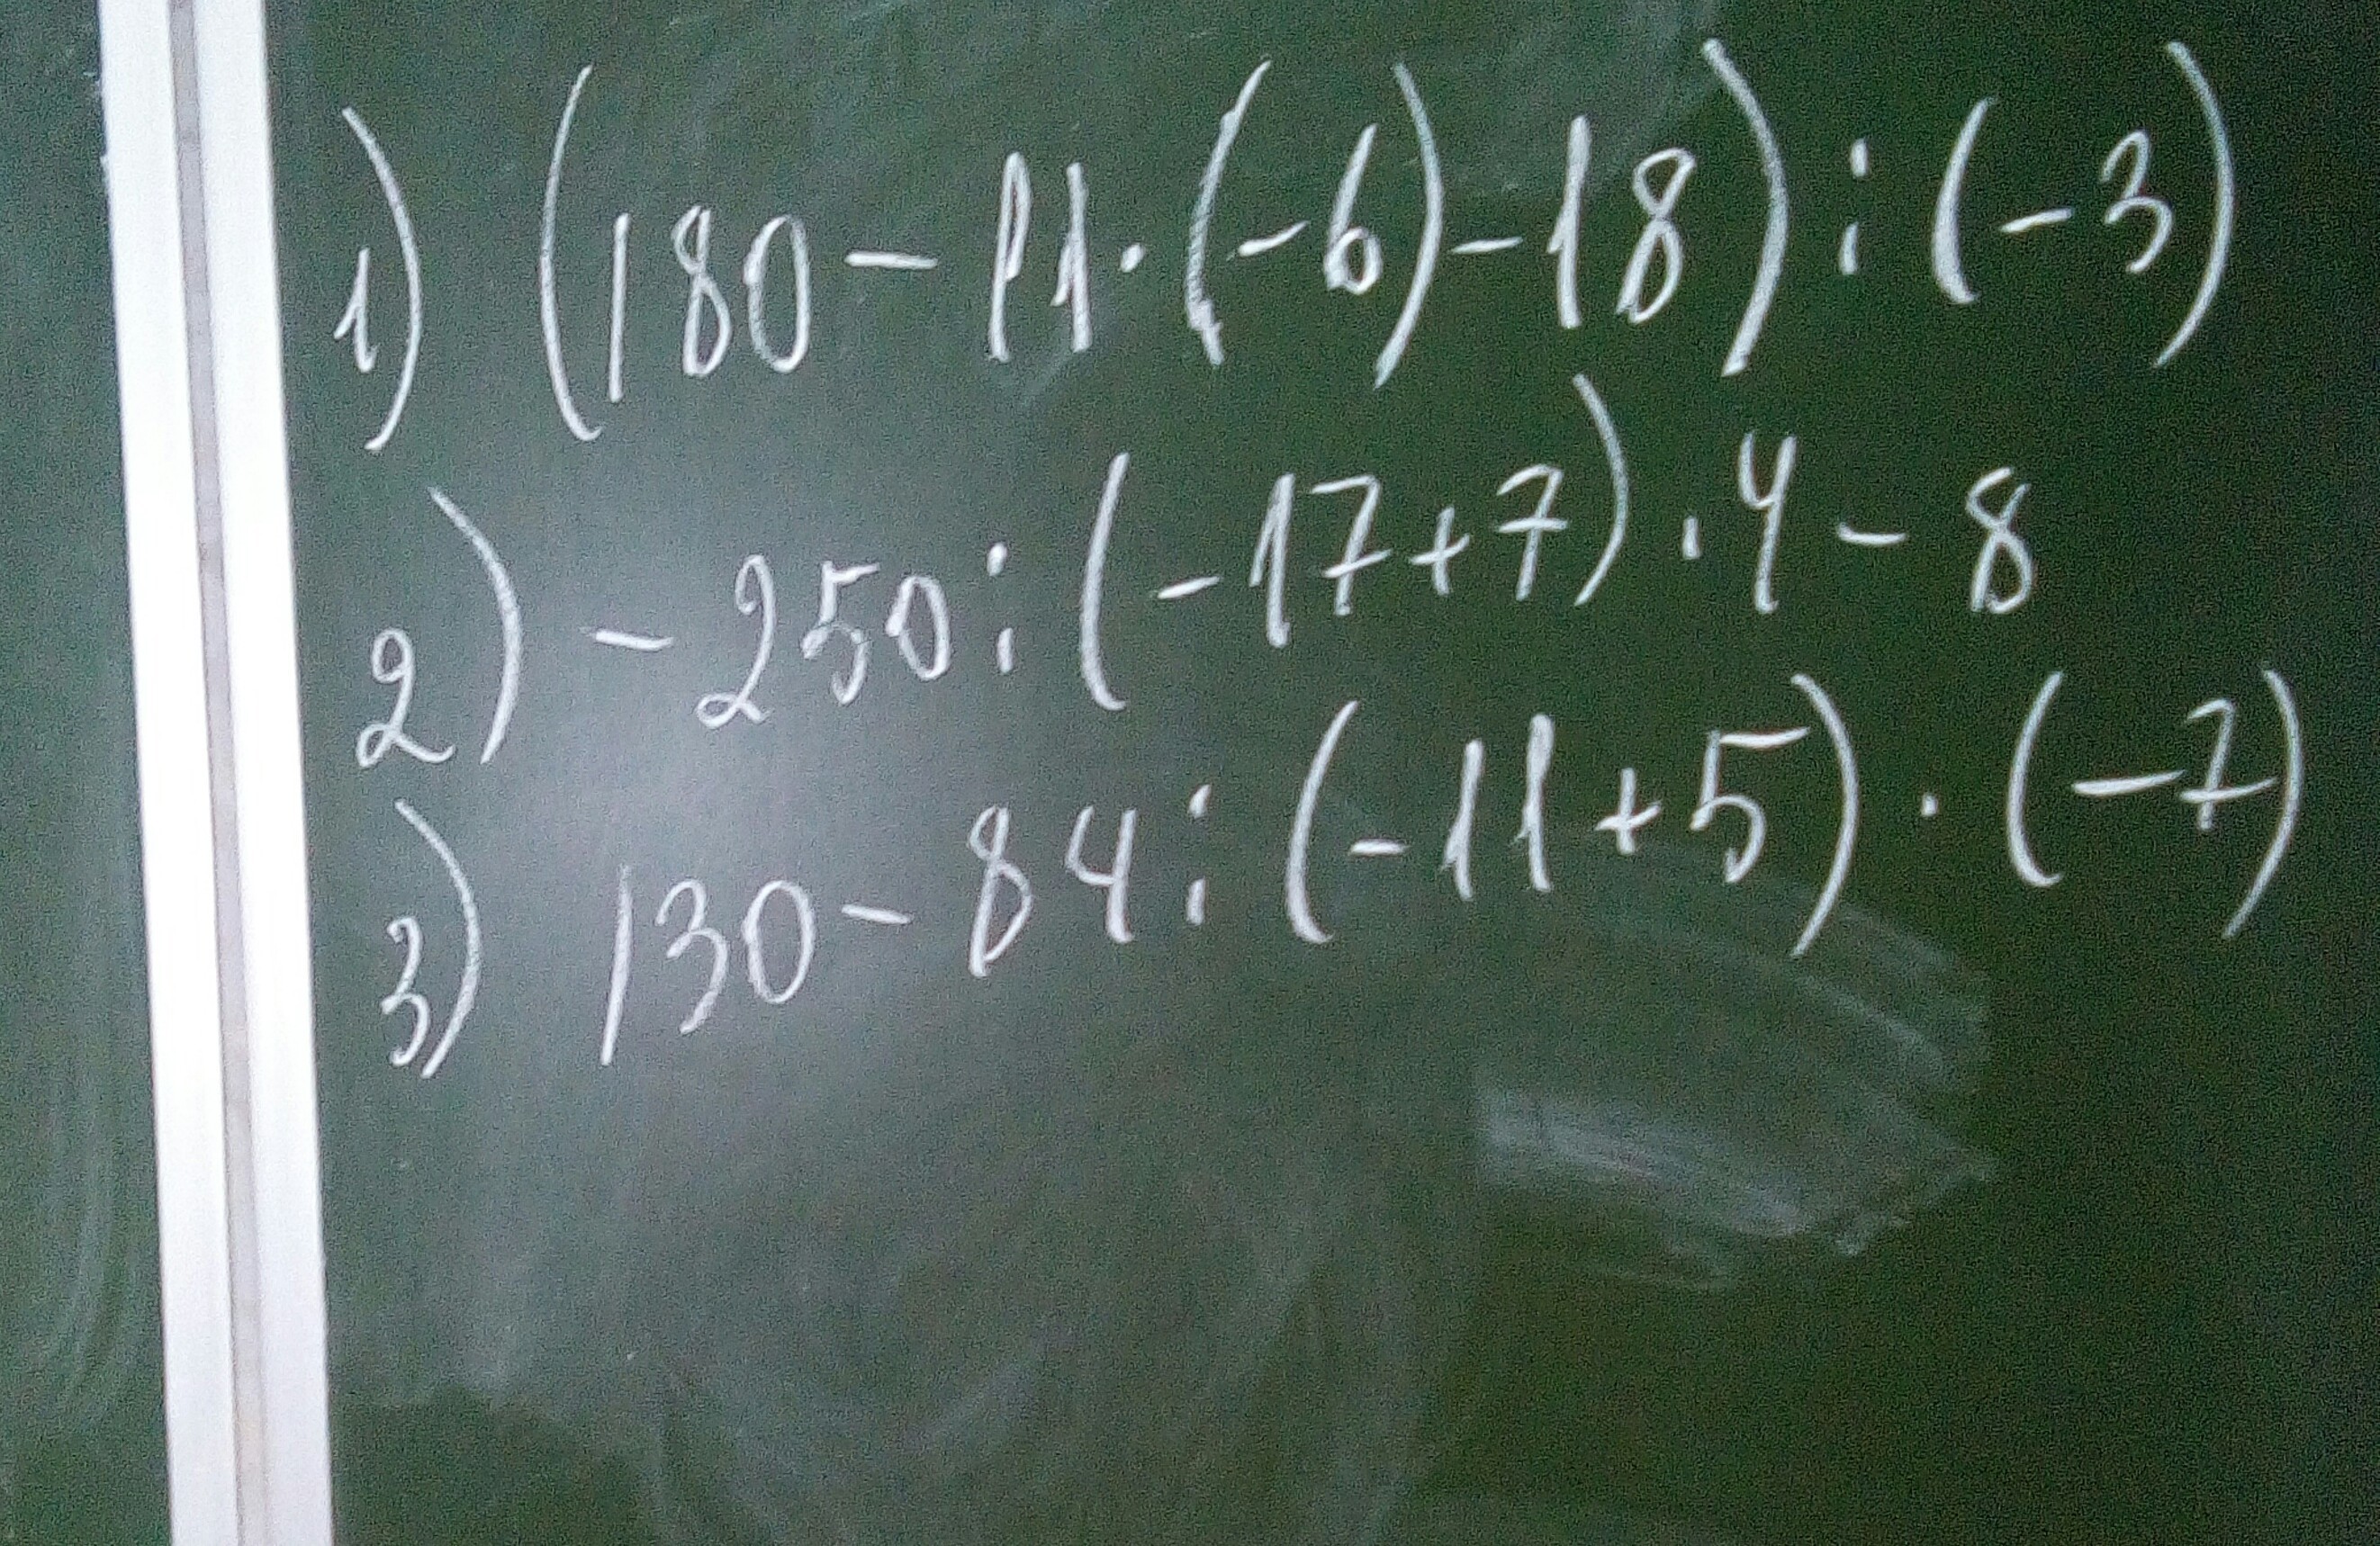 1) (180 - 11 · (-6) - 18) : (-3)
2) - 250 : (-17 + 7) · 4 - 8
3) 130 - 84 : (-11 + 5) · (-7)